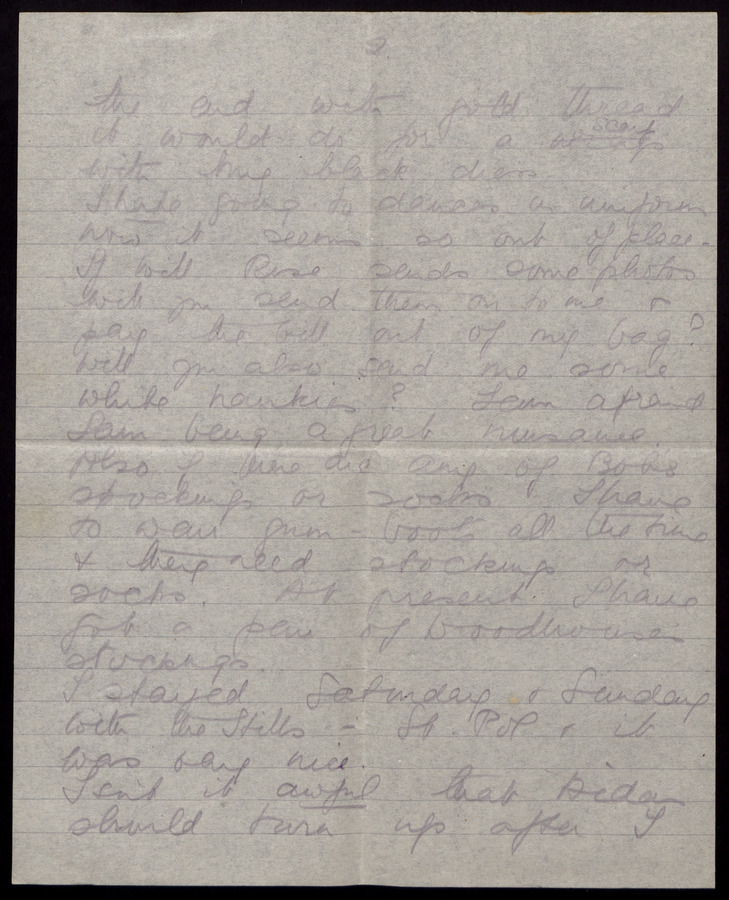 2.
the end with gold thread
it would do for a scarf
with my black dress.
I hate going to dances in uniform
now it seems so out of place.
If Will Rose sends some photos
will you send them on to me &
pay the bill out of my bag?
Will you also send me some
white hankies? I am afraid
I am being a great nuisance.
Also if there are any of Bob's
stockings or socks. I have
to wear gum-boots all the time
& they need stockings or
socks. At present I have
got a pair of Woodhouse's
stockings.
I stayed Saturday & Sunday
with the Stills - St. Pol & it
was very nice.
Isn't it awful that
should turn up after I